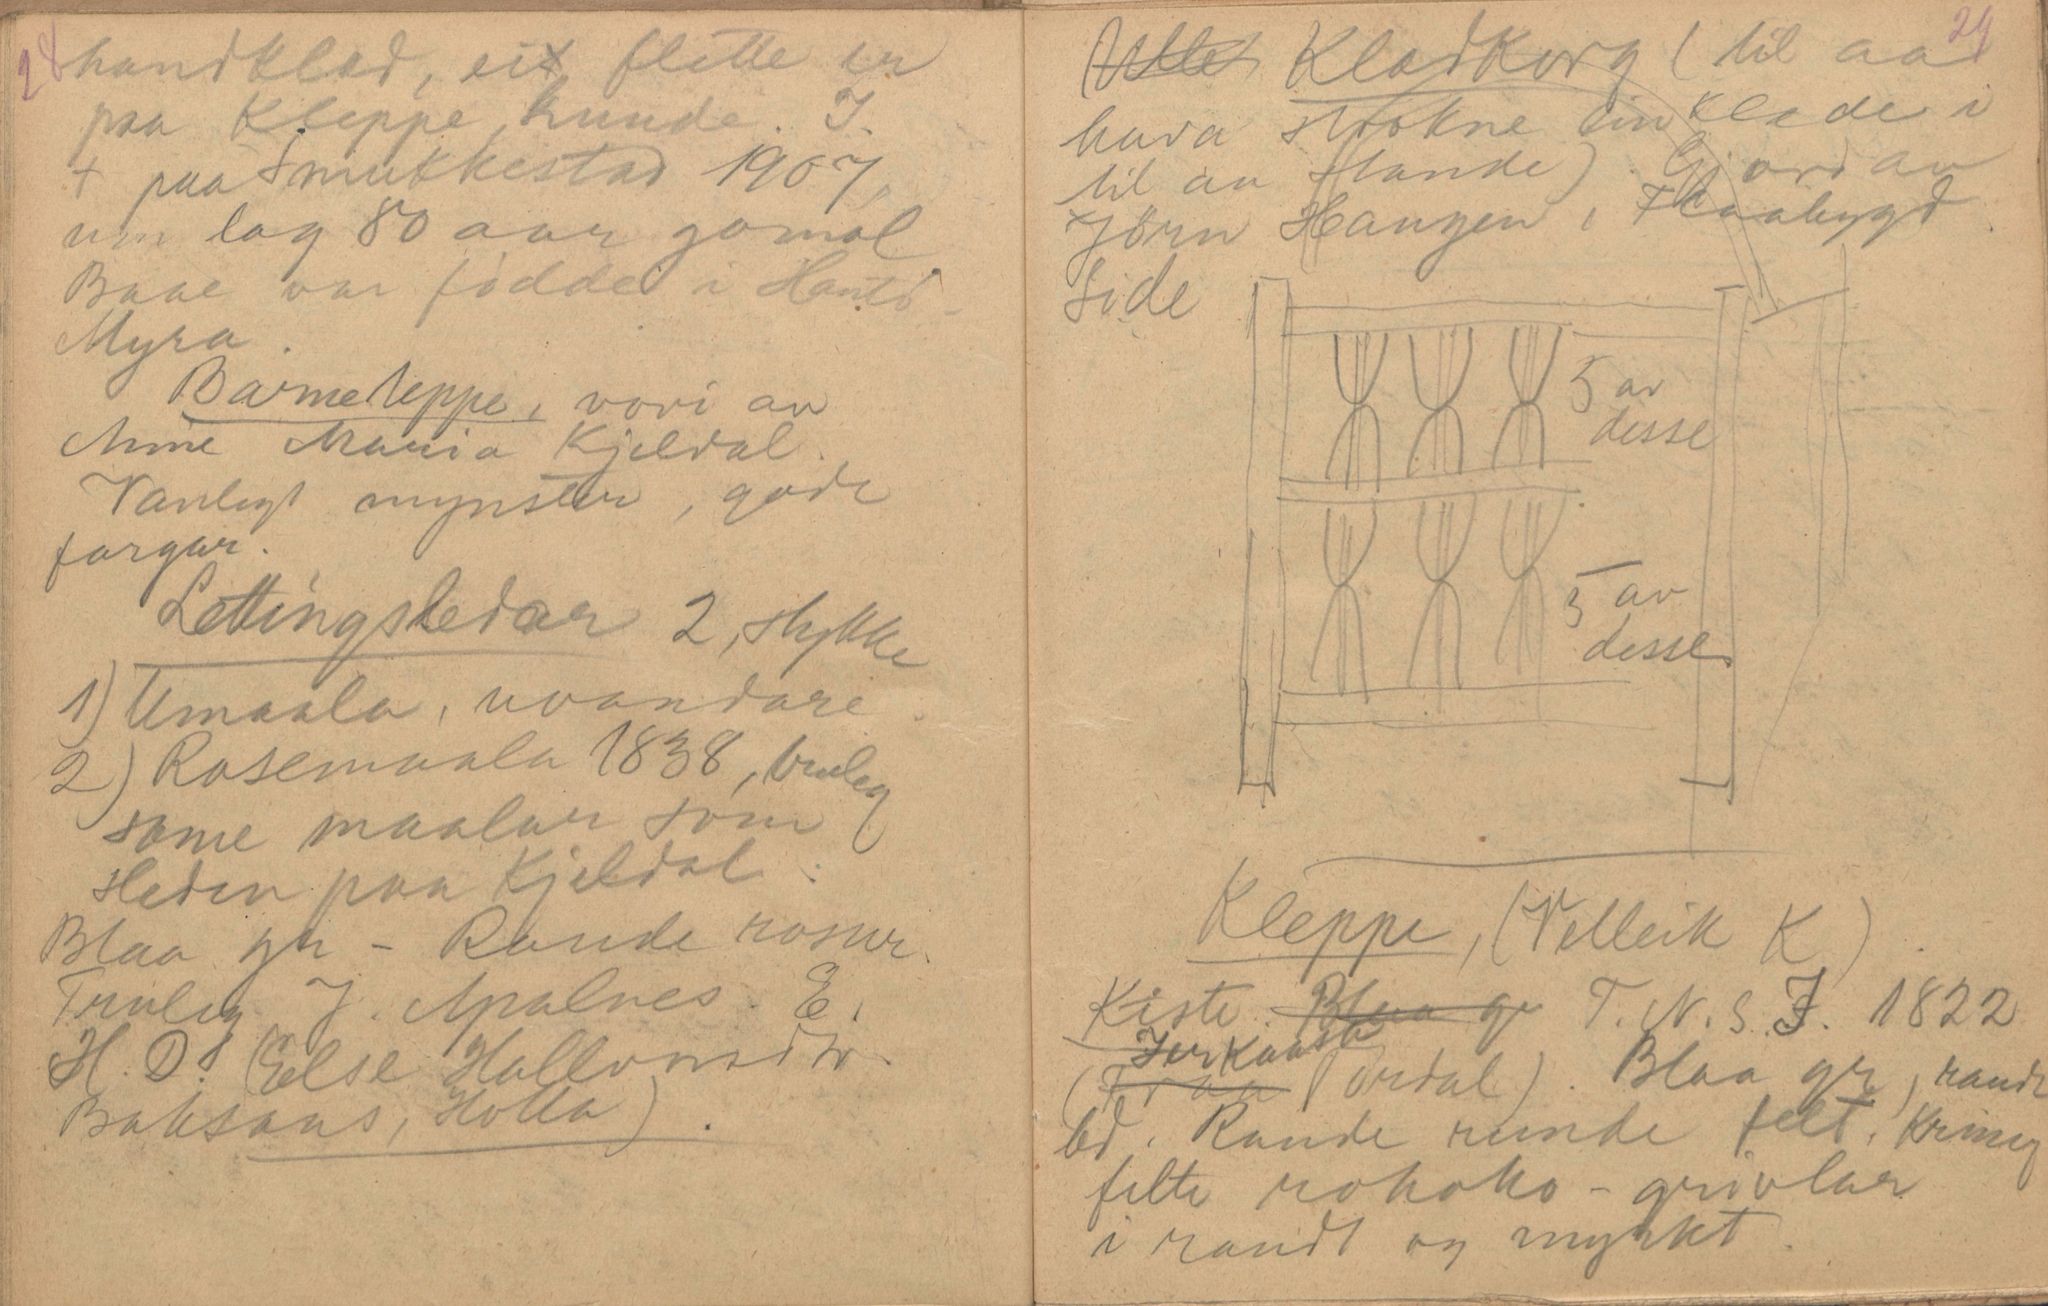 28
handklæd, eit flette er
paa Kleppe, hunde. I.
+ paa Smukkestad 1907,
um lag 80 aar gamal
Baae var fødde i
Myra.
Barmeteppe, vovi av
Anne Maria Kjeldal.
Vanlegt mynster, gode
fargar.
Lettingsledar 2, stykke
1) Umaala, uvandare.
2) Rosemaala 1838, truleg
same maalar som
sleden paa Kjeldal:
Blaa gr - Raude rosur.
Truleg J. Apalnes. E.
H. D. (Else Hallvorsdtr.
Baksaas, Holla).
29
Klædkorg (til aa
hava strokne linklæde i
til aa stande). Gjord av
Jörn Haugen i Flaabygd.
Side
5 av
desse
5 av
desse
Kleppe, (Velleik K).
Kiste. Blaa gr T. N. S. I. 1822
(Jurkaasa
Tordal). Blaa gr, raude
bd. Raude runde felt. Kring
felte rokoko - grivlar
i raudt og myrkt.